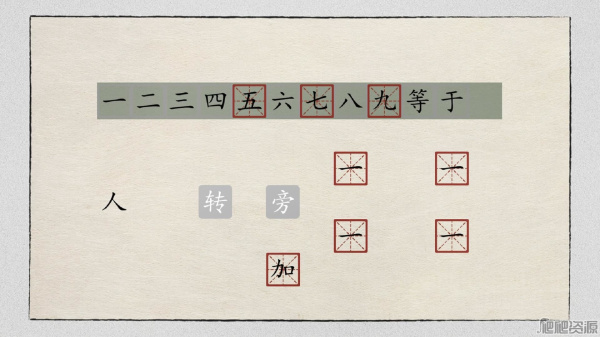 一二三四五六七八九等于
一 一
人 转 旁
一 一
加
爬爬资源